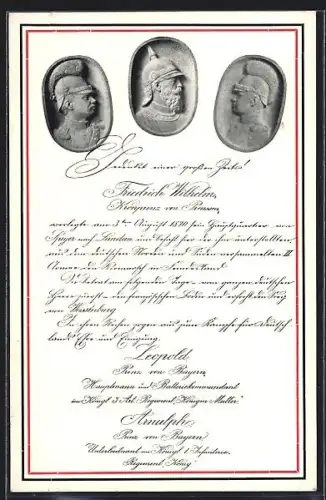 Gedenket einer großen Zeit!
Friedrich Wilhelm,
Kronprinz von Preussen,
verlegte am 3ten August 1870 sein Hauptquartier von
Speyer nach Landau und befiehlt für die ihm unterstellten,
aus dem deutschen Norden und Süden versammelten III.
Armee den Vormarsch in Feindesland.
betrat am folgenden Tage von ganzen deutschen
Heere zuerst den französischen Boden und erficht den Sieg
von Weissenburg
In ihren Reihen zogen aus zum Kampfe für Deutsch
lands Ehre und Einigung:
Leopold
Prinz von Bayern
Hauptmann und Batteriekommandant
im Königl. 3. Art. Regiment "Königin Mutter"
Arnulph
Prinz von Bayern
Unterlieutenant im Königl. 1. Infanterie
Regiment "König"